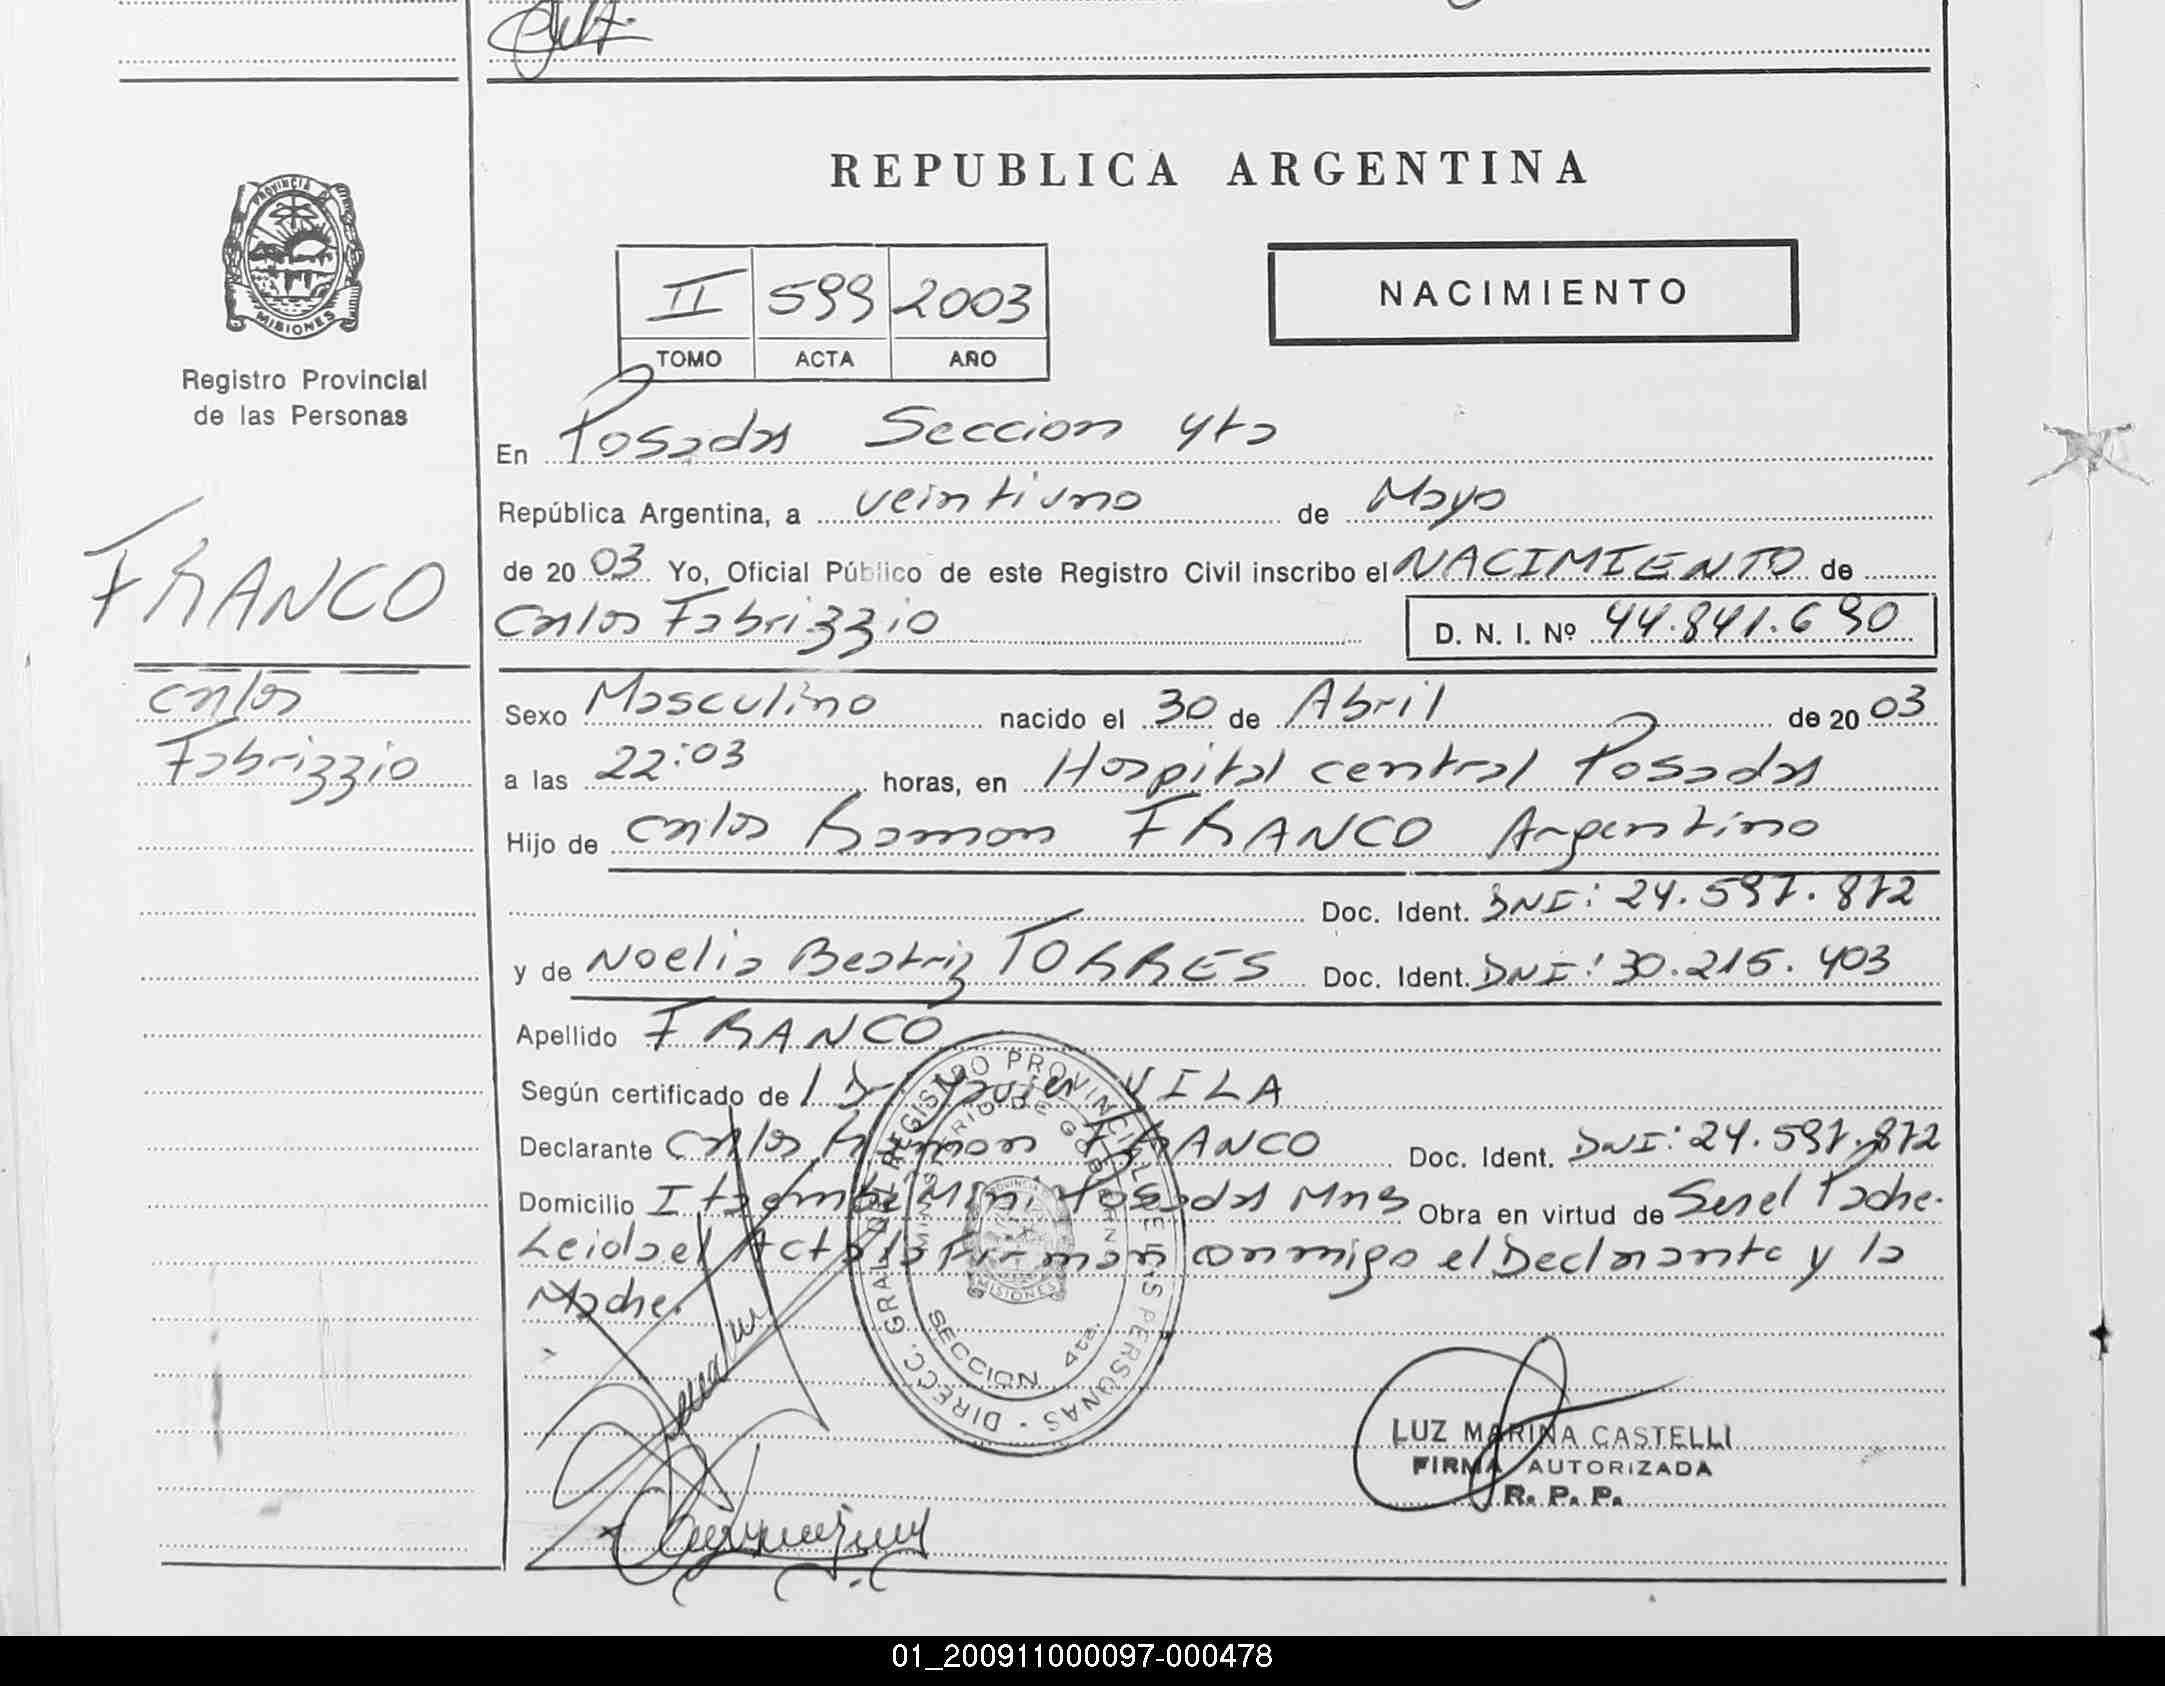 REPUBLICA ARGENTINA
PROVINCIA DE
MISIONES
Registro Provincial
de las Personas
II 599 2003
TOMO ACTA AÑO
NACIMIENTO
En Posadas Seccion 4ta
República Argentina, a veintiuno de Mayo
de 20 03 Yo, Oficial Público de este Registro Civil inscribo el NACIMIENTO de
Carlos Fabrizzio D. N. I. Nº 44.841.690
FRANCO
Carlos
Fabrizzio
Sexo Masculino nacido el 30 de Abril de 20 03
a las 22:03 horas, en Hospital central Posadas
Hijo de Carlos Ramon FRANCO Argentino
Doc. Ident. DNI: 24.597.872
y de Noelia Beatriz TORRES Doc. Ident. DNI: 30.215.403
Apellido FRANCO
Según certificado de Dr Javier VILA
Declarante Carlos Ramon FRANCO Doc. Ident. DNI: 24.597.872
Domicilio Itaembe Mini Posadas Mns Obra en virtud de Ser el Padre.
Leida el Acta la Firman conmigo el Declarante y la
Madre.
DIRECC. GRAL. DEL REGISTRO PROVINCIAL DE LAS PERSONAS
MINISTERIO DE GOBIERNO
PROVINCIA DE
MISIONES
SECCION 4ta.
LUZ MARINA CASTELLI
FIRMA AUTORIZADA
R. P. P.
01_200911000097-000478